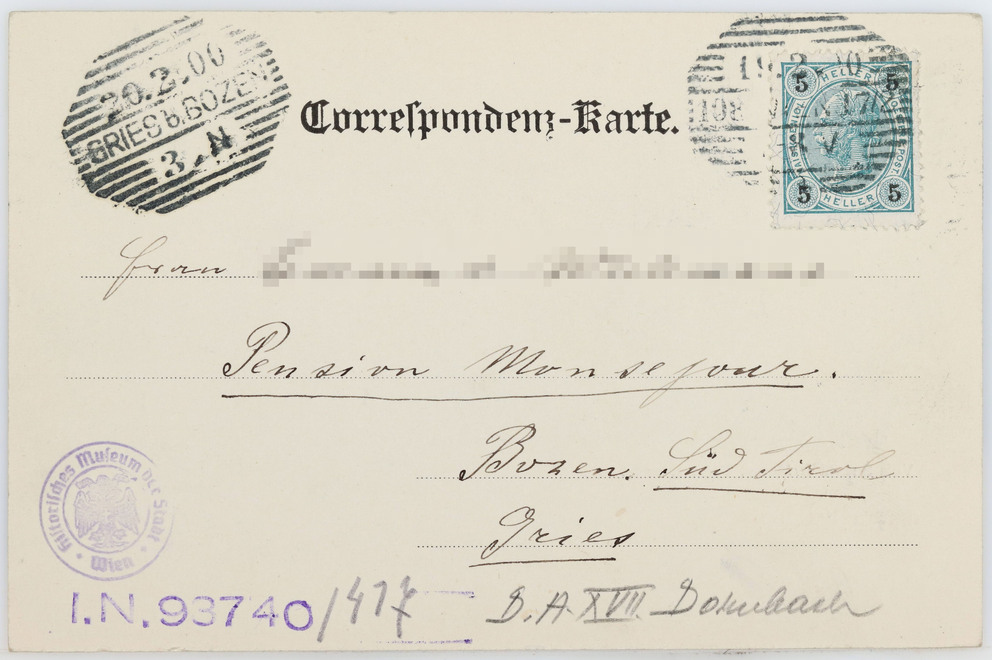 20.2.00
GRIES b. BOZEN
3.N
Correspondenz-Karte.
5 HELLER 5
5 HELLER 5
Frau
Pension Monsejour.
Bozen. Süd Tirol
Gries
Historisches Museum der Stadt
Wien
I.N. 93740/477
D.A. XVII Dornbach